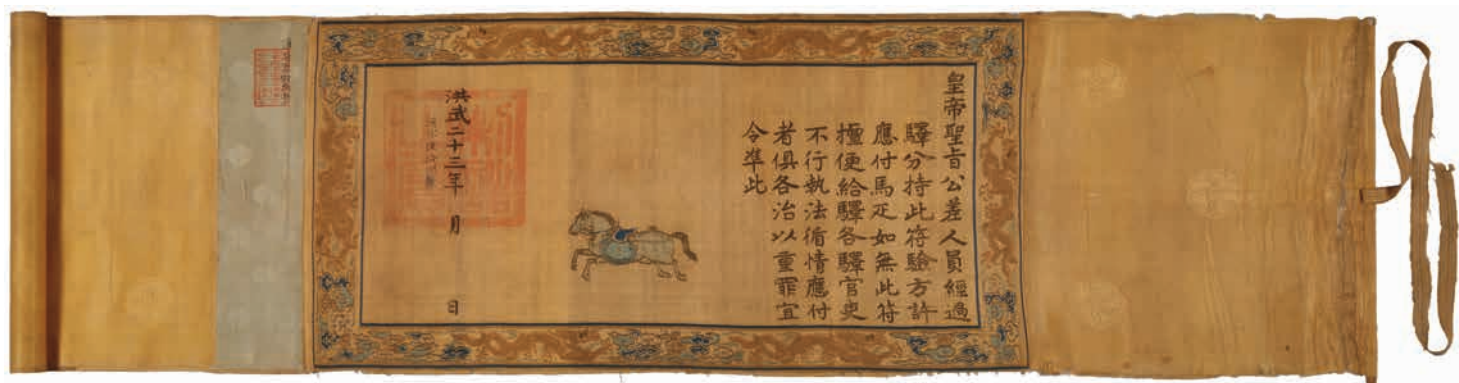 皇帝聖旨公差人員經過
驛分持此符驗方許
應付馬疋如無此符
擅便給驛各驛官吏
不行執法循情應付
者俱各治以重罪宜
令準此
洪武二十三年 月 日